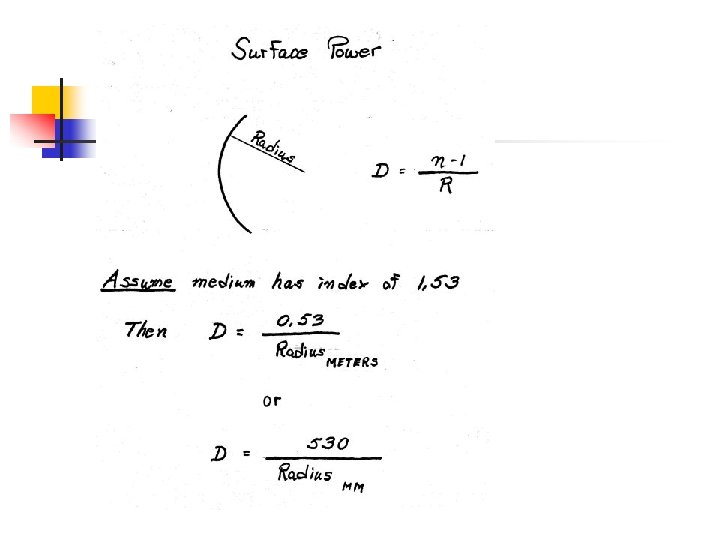 Surface Power
Radius
D = n-1
R
Assume medium has index of 1.53
Then D = 0.53
Radius METERS
or
D = 530
Radius MM